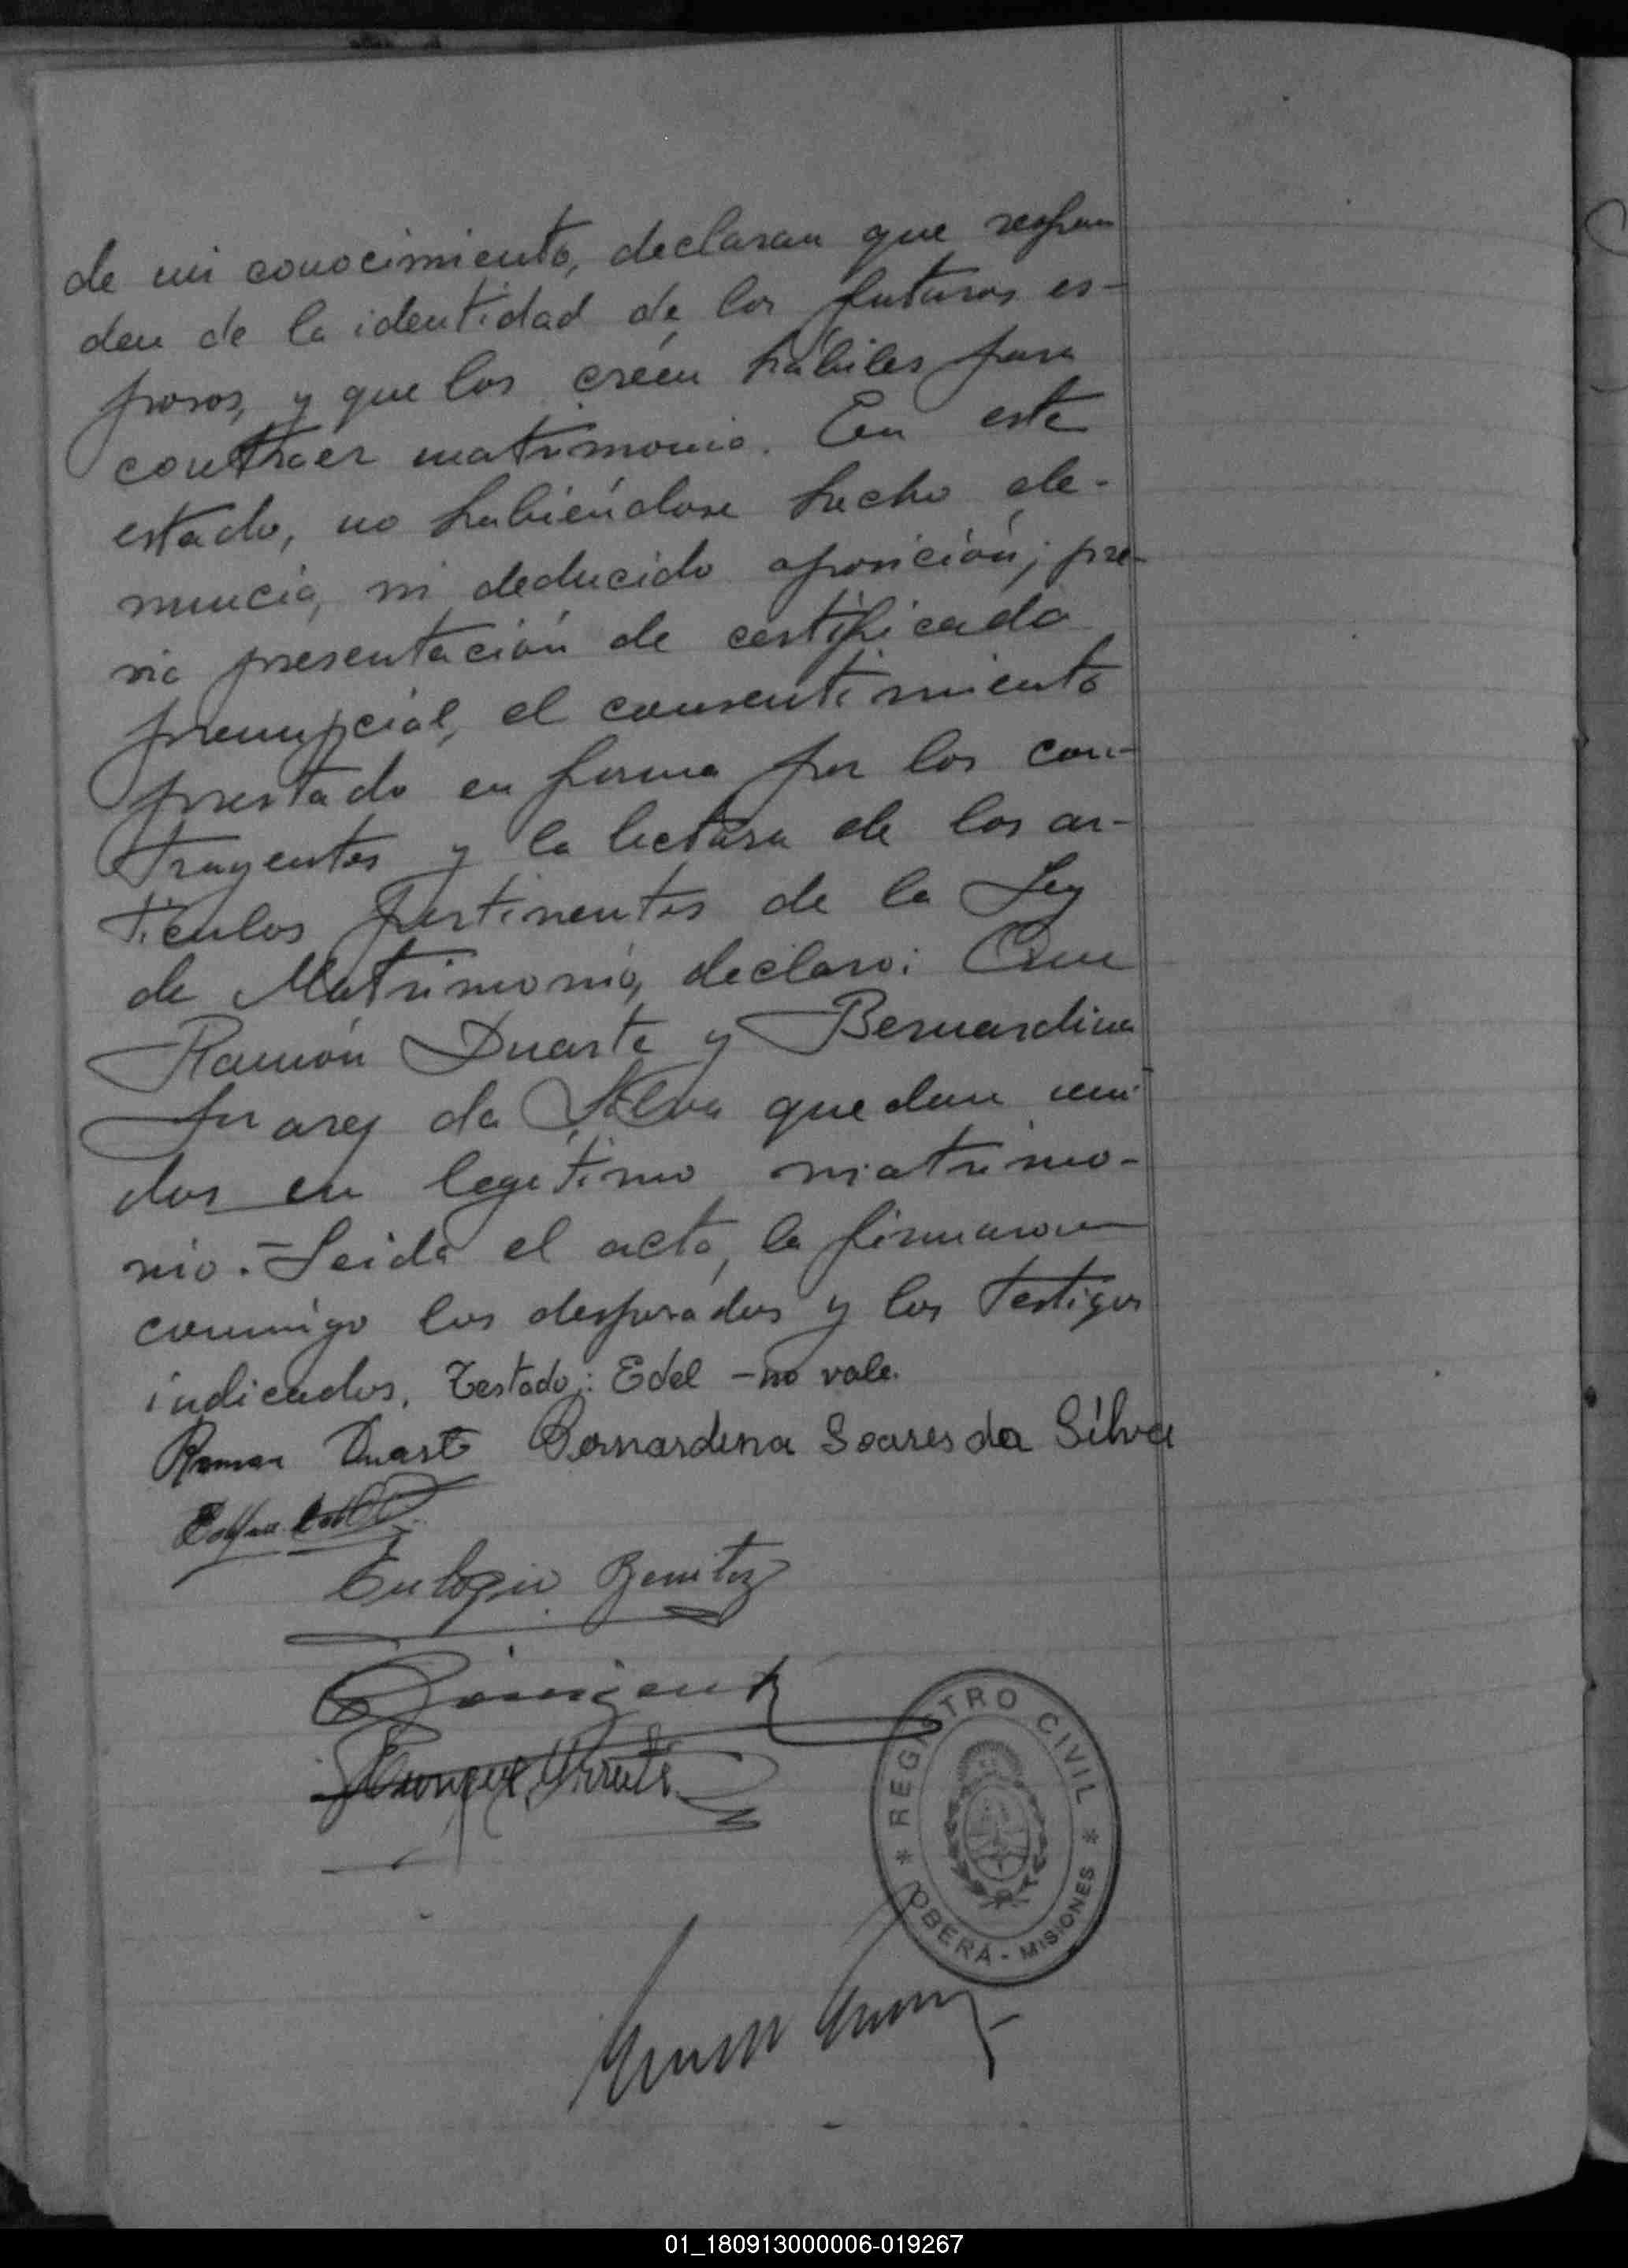 de mi conocimiento, declaran que respon
den de la identidad de los futuros es-
posos, y que los créen hábiles para
contraer matrimonio. En este
estado, no habiéndose hecho de-
nuncia, ni deducido oposición; pre-
via presentación de certificado
prenupcial, el consentimiento
prestado en forma por los con-
trayentes y la lectura de los ar-
tículos pertinentes de la Ley
de Matrimonio, declaro: Que
Ramón Duarte y Bernardina
Juarez da Silva quedan uni
dos en legítimo matrimo-
nio.- Leida el acta, la firmaron
conmigo los desposados y los testigos
indicados. Testado: Edel - no vale.
Ramon Duarte Bernardina Soares da Silva
Eulogio Benitez
REGISTRO CIVIL
* OBERÁ - MISIONES *
01_180913000006-019267